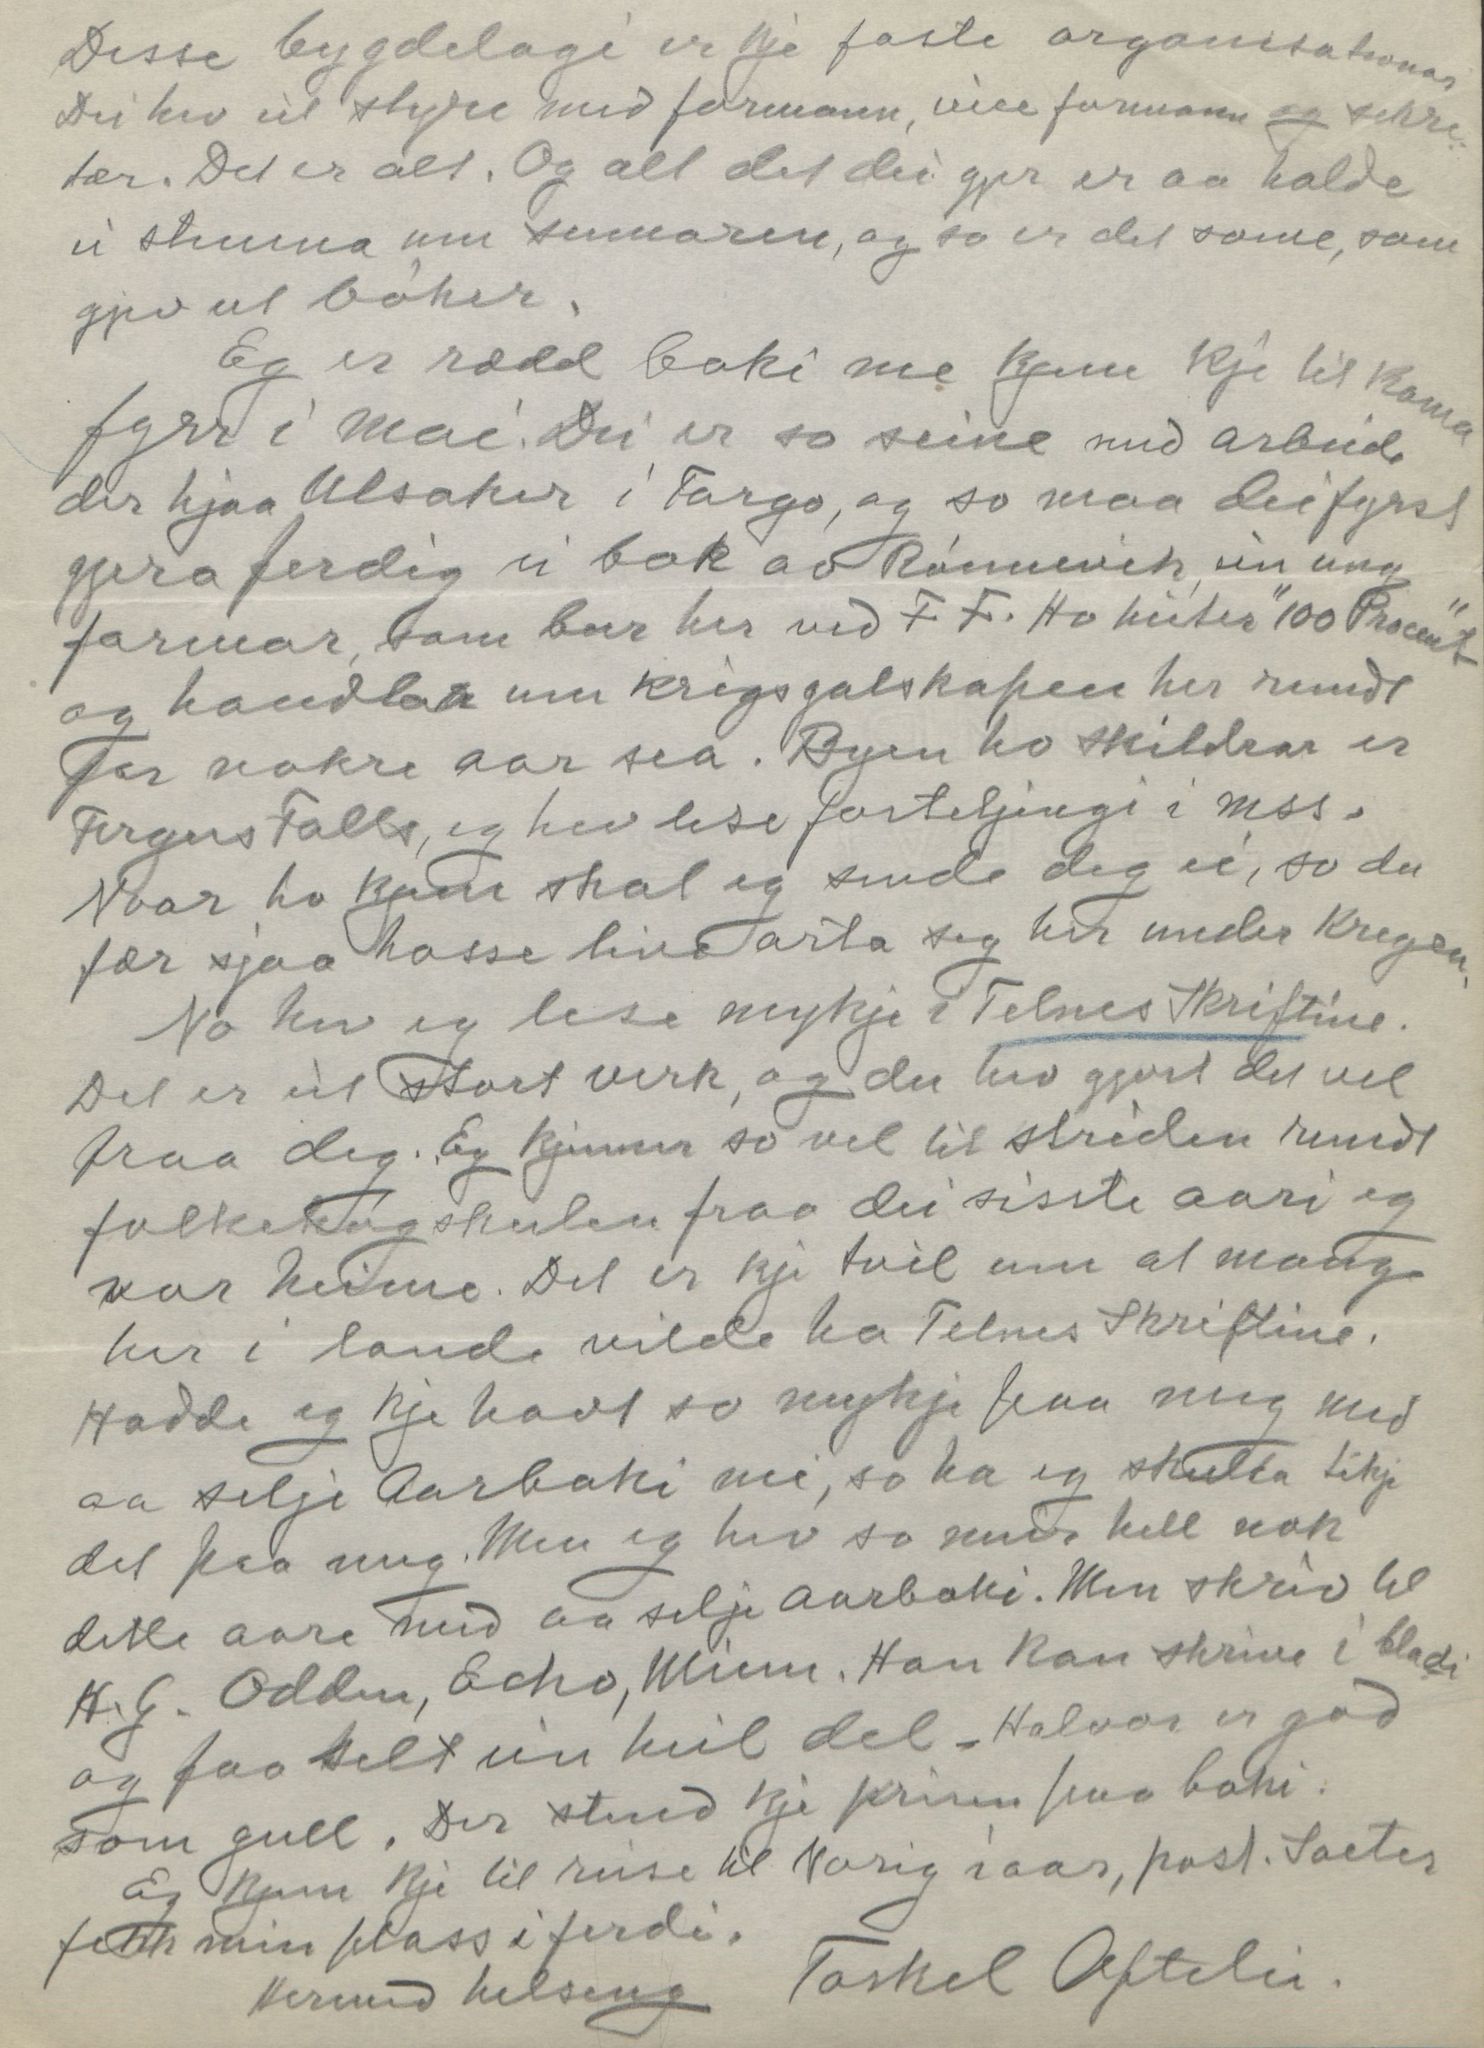 Desse bygdelagi er kje faste organisationar
Dei hev eit styre med formann, vice formann og sekre-
tær. Det er alt. Og alt det dei gjer er aa halde
ei stemna um sumaren, og so er det some, som
gjev ut bøker.
Eg er rædd boki me kjem kje til koma
fyrr i mai. Dei er so seine med arbeide
der hjaa Ulsaker i Fargo, og so maa dei fyrst
gjera ferdig ei bok av Rønnevik, ein ung
farmar, som bur her ved F. F. Ho heiter "100 Procent"
og handlar um krigsgalskapen her rundt
for nokre aar sea. Byen ho skildrar er
Fergus Falls, eg hev lese forteljingi i mss.
Naar ho kjem skal eg sende deg ei, so du
fær sjaa hosse live arta seg her under krigen.
No hev eg lese mykje i Telnes Skriftine.
Det er eit stort verk, og du hev gjort det vel
fraa deg. Eg kjenner so vel til striden rundt
folkehøgskulen fraa dei sisste aari eg
var heime. Det er kje tvil um at mange
her i lande vilde ha Telnes Skriftine.
Hadde eg kje havt so mykje paa meg med
aa selje Aarboki mi, so ha eg skulla tikje
det paa meg. Men eg hev so meir hell nok
dette aare med aa selje aarboki. Men skriv til
H. G. Odden, Echo, Minn. Han kan skrive i bladi
og faa selt ein heil del - Halvor er god
som gull. Der stend kje prisen paa boki.
Eg kjem kje til reise til Norig i aar, past. Saeter
fekk min plass i ferdi.
Vermed helseng Torkel Oftelie.